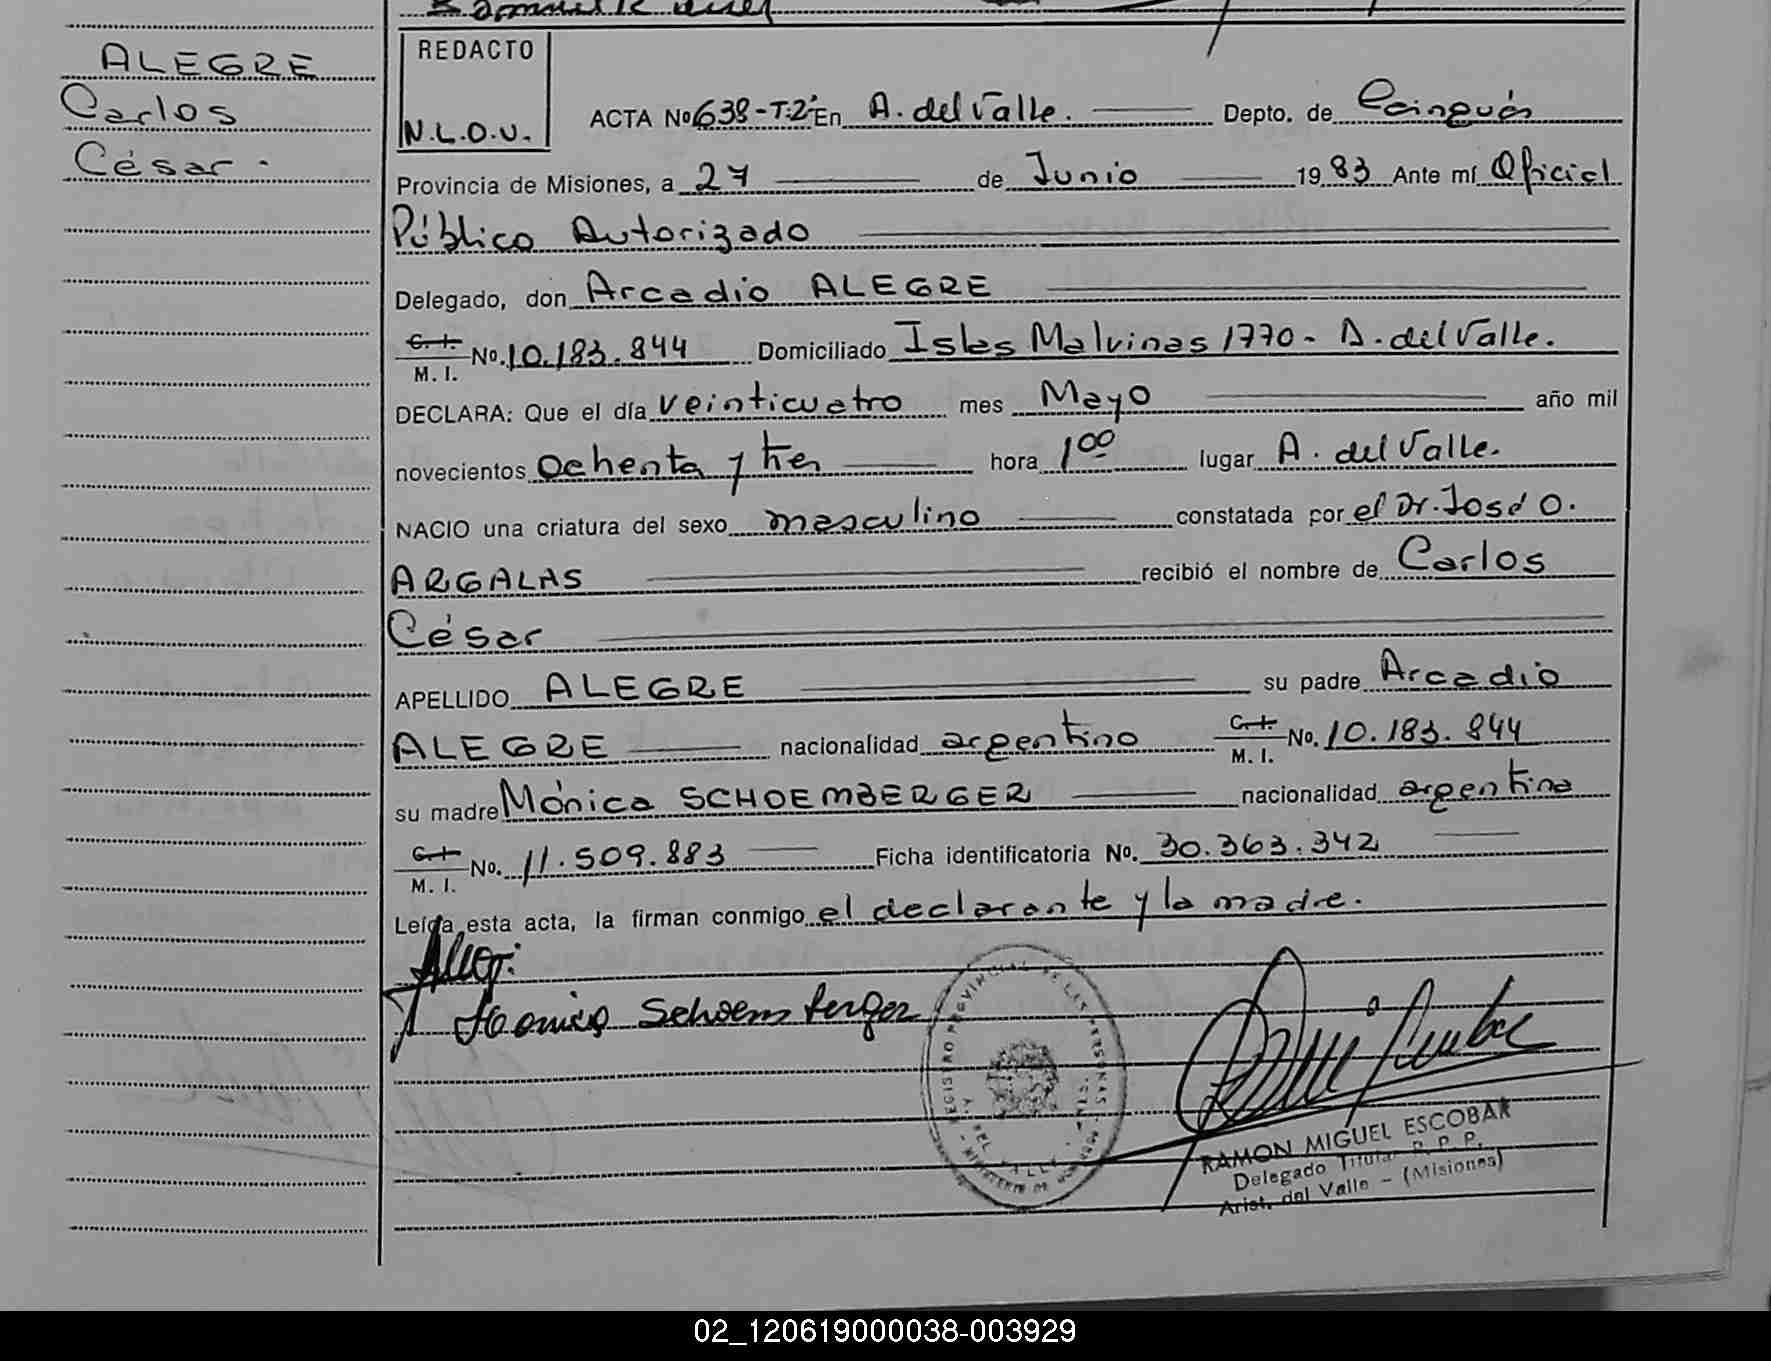 ALEGRE
Carlos
César.
REDACTO
N.L.O.V.
ACTA Nº 638-T:2º En A. del Valle. Depto. de Cainguás
Provincia de Misiones, a 27 de Junio 19 83 Ante mí Oficial
Público Autorizado
Delegado, don Arcadio ALEGRE
C. I. M. I. No. 10.183.844 Domiciliado Islas Malvinas 1770- A. del Valle.
DECLARA: Que el día veinticuatro mes Mayo año mil
novecientos ochenta y tres hora 1 00 lugar A. del Valle.
NACIO una criatura del sexo masculino constatada por el Dr. José O.
ARGALAS recibió el nombre de Carlos
César
APELLIDO ALEGRE su padre Arcadio
ALEGRE nacionalidad argentino C. I. M. I. No. 10.183.844
su madre Mónica SCHOEMBERGER nacionalidad argentina
C. I. M. I. No. 11.509.883 Ficha identificatoria No. 30.363.342
Leída esta acta, la firman conmigo el declarante y la madre.
Schoemberger
REGISTRO PROVINCIAL DE LAS PERSONAS
RAMON MIGUEL ESCOBAR
Delegado Titular R. P. P.
Arist. del Valle - (Misiones)
02_120619000038-003929